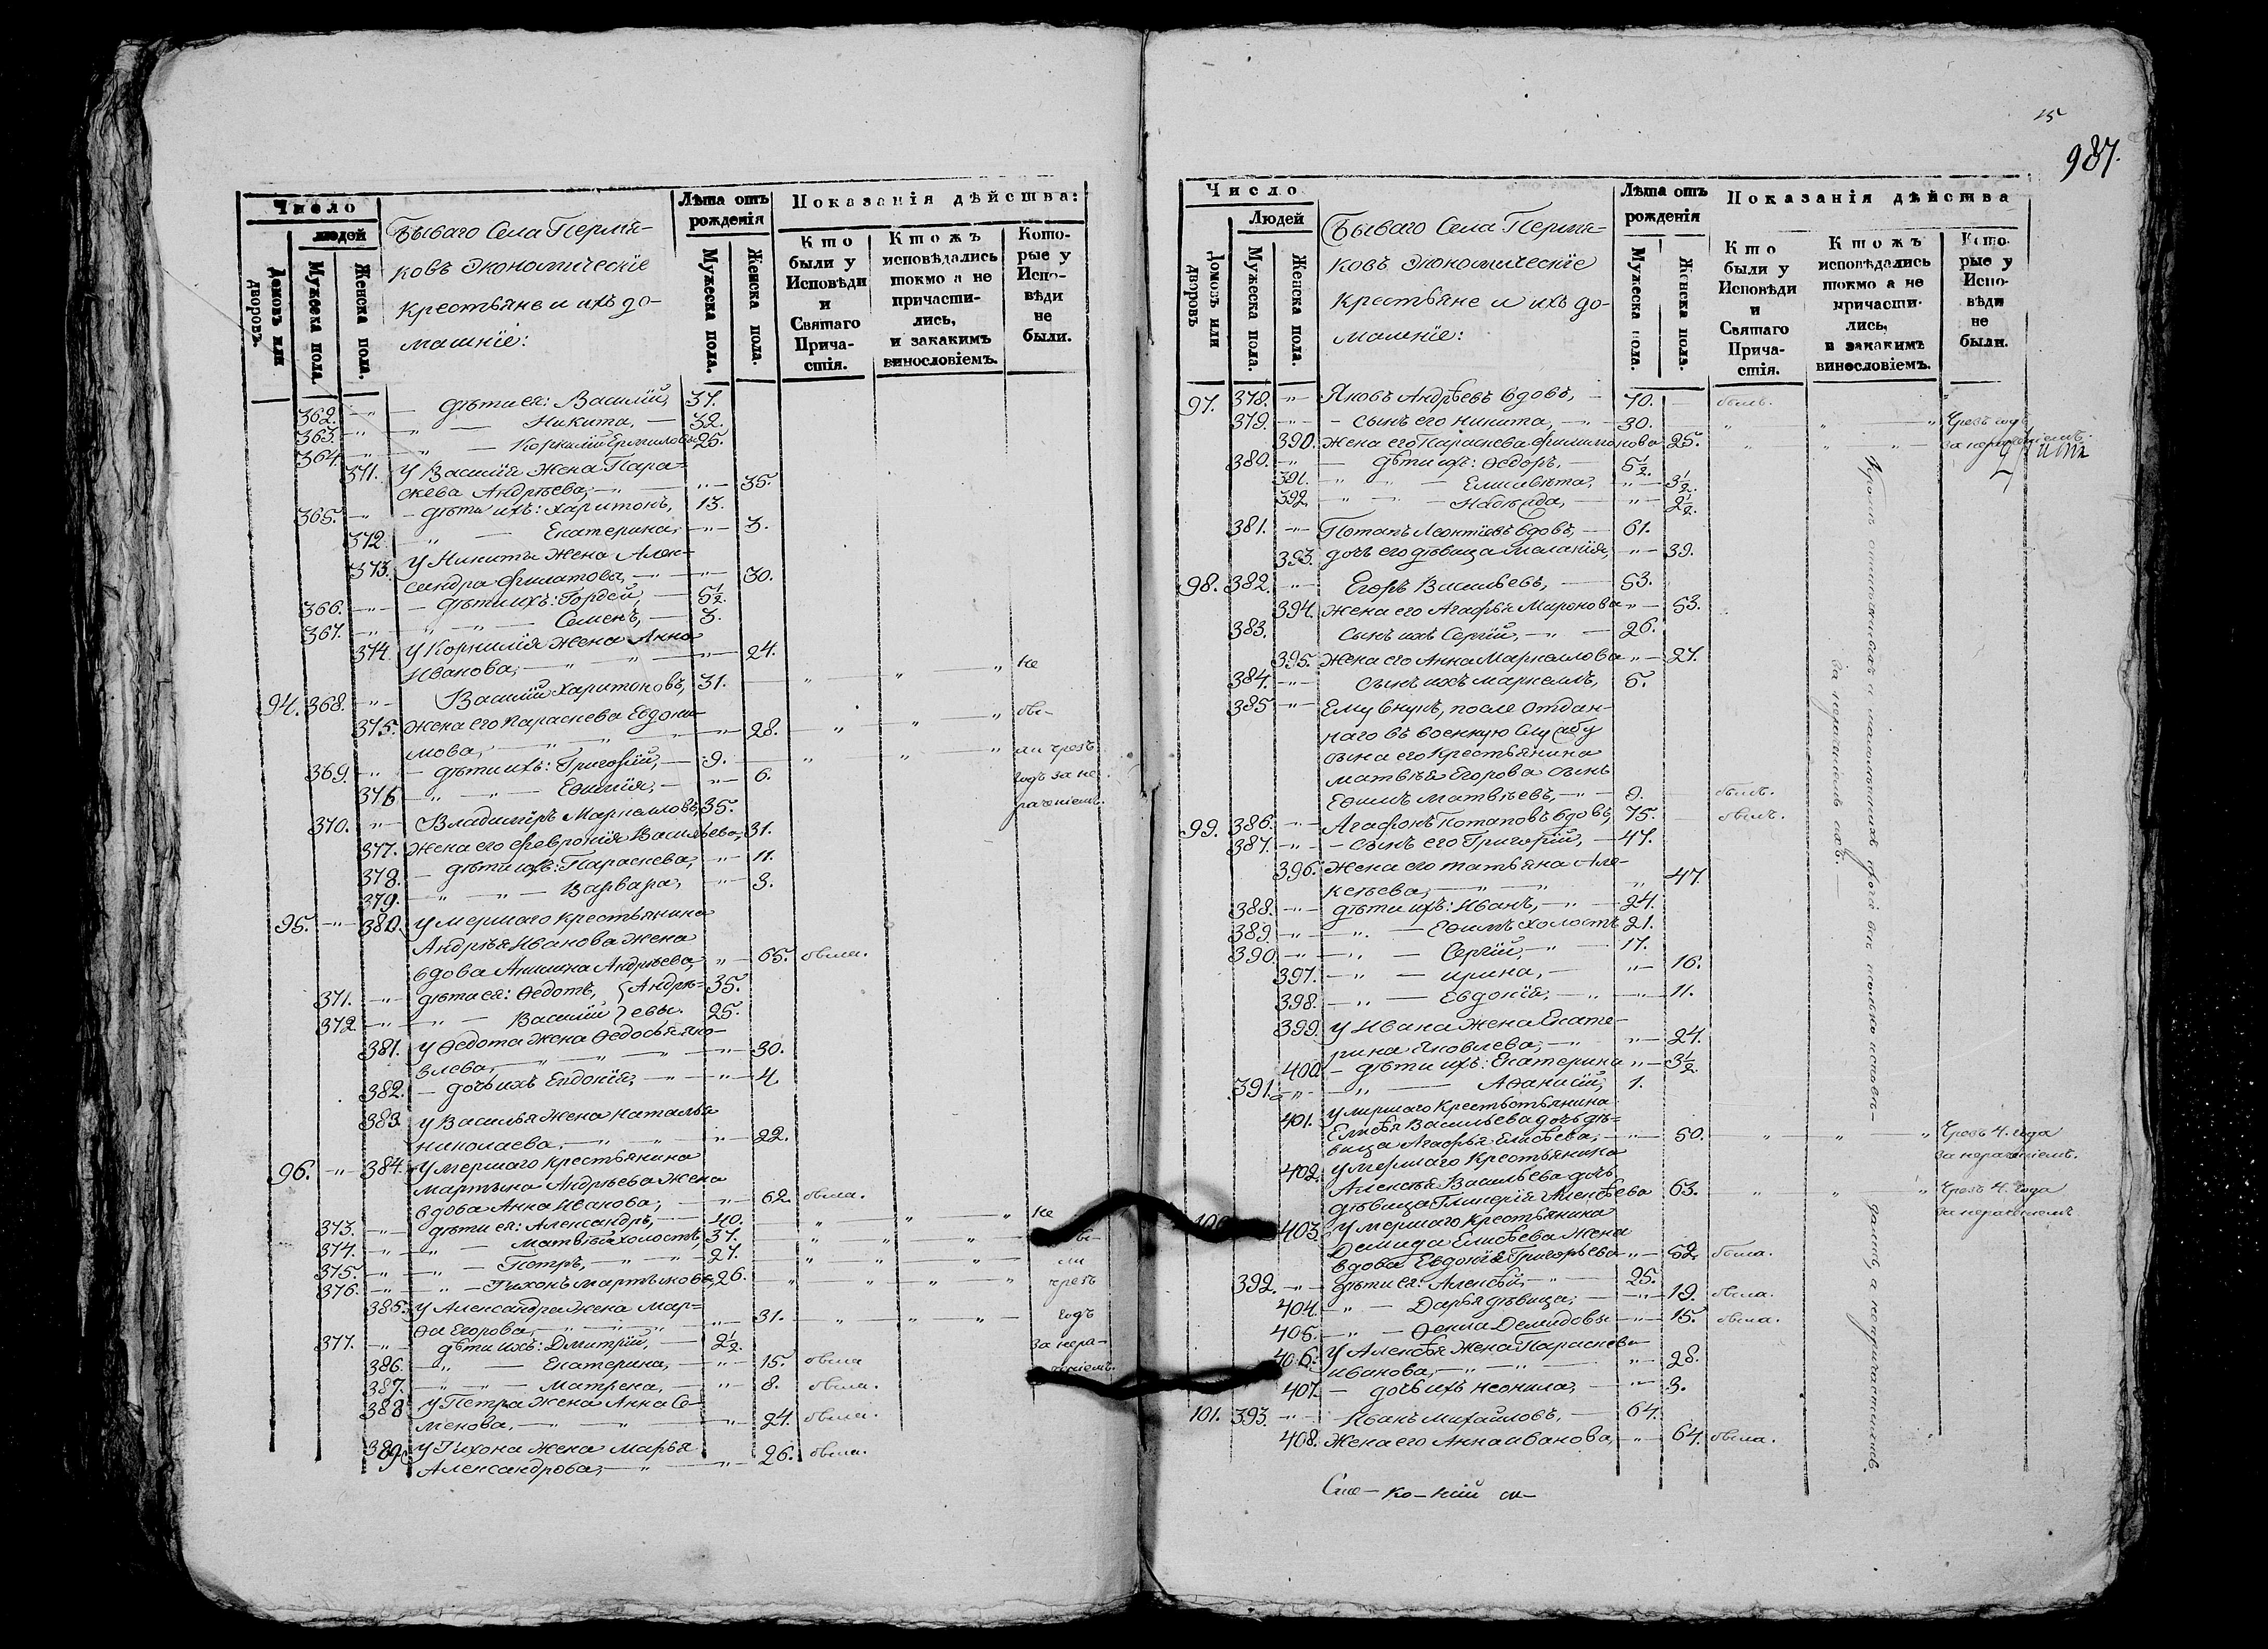 Число
людей
Домовъ или дворовъ.
Мужеска пола.
Женска пола.
Бываго Села Пермя-
ковъ Экономическіе
крестьяне и ихъ до-
машніе:
Лѣта отъ рожденія
Мужеска пола.
Женска пола.
Показанія дѣйства:
Кто были у Исповѣди и Святаго Прича-стія.
Ктожъ исповѣдались токмо а не причасти-лись, и закакимъ винословіемъ.
Кото-рые у Испо-вѣди не были.
362. дѣти ея: Василій, 37.
363. Никита, 32.
364. Корнилій Ермиловы 25.
371. У Василія жена Пара-
скева Андрѣева, 35.
365. дѣти ихъ: Харитонъ, 13.
372. Екатерина, 3.
373. У Никиты жена Алек-
сандра Филатова, 30.
366. дѣти ихъ: Гордей, 5½.
367. Семенъ, 3.
374. У Корнилія жена Анна
Иванова, 24.
94. 368. Василій Харитоновъ, 31. не
375. Жена его Параскева Евдоки-
мова, 28. бы-
369. дѣти ихъ: Григорій, 9. ли чрезъ
376. Евфимія, 6. годъ за не
370. Владимиръ Маркелловъ, 35. раченіемъ.
377. Жена его Февронія Васильева, 31.
378. дѣти ихъ: Параскева, 11.
379. Варвара, 3.
95. 380. Умершаго крестьянина
Андрѣя Иванова жена
вдова Акилина Андрѣева, 65. была.
371. дѣти ея: Ѳедотъ, Андрѣ- 35.
372. Василій евы. 25.
381. У Ѳедота жена Ѳедосья Яко-
влева, 30.
382. дочь ихъ Евдокія, 4.
383. У Василья жена Наталья
Николаева, 22.
96. 384. Умершаго крестьянина
Мартына Андрѣева жена
вдова Анна Иванова, 62. была.
373. дѣти ея: Александръ, 40. не
374. Матвѣй холостъ, 37. бы-
375. Петръ, 27. ли
376. Тихонъ Мартыновы, 26. чрезъ
385. У Александра жена Мар-
ѳа Егорова, 31. годъ
377. дѣти ихъ: Дмитрій, 2½. за нера-
386. Екатерина, 15. была ченіемъ.
387. Матрена, 8. была.
388. У Петра жена Анна Се-
менова, 24. была.
389. У Тихона жена Марья
Александрова, 26. была.
15
987.
Число
Людей
Домовъ или дворовъ
Мужеска пола.
Женска пола.
Бываго Села Пермя-
ковъ Экономическіе
крестьяне и ихъ до-
машніе:
Лѣта отъ рожденія
Мужеска пола.
Женска пола.
Показанія дѣйства
Кто были у Исповѣди и Святаго Прича-стія.
Ктожъ исповѣдались токмо а не причасти-лись, и закакимъ винословіемъ.
Кото-рые у Испо-вѣди не были.
97. 378. Яковъ Андрѣевъ вдовъ, 70. былъ.
379. сынъ его Никита, 30. Чрезъ годъ
390. Жена его Параскева Филимонова 25. за нераченіемъ.
380. дѣти ихъ: Ѳедоръ, 5½.
391. Елисавѣта, 3½.
392. Надежда, 2½.
381. Потапъ Леонтіевъ вдовъ, 61.
393. дочь его дѣвица Маланія, 39.
98. 382. Егоръ Васильевъ, 53.
394. Жена его Агафья Миронова 53.
383. сынъ ихъ Сергій, 26.
395. Жена его Анна Маркеллова 27.
384. сынъ ихъ Маркеллъ, 5.
385 Ему внукъ, после отдан-
наго въ военную службу
сына его крестьянина
Матвѣя Егорова сынъ
Ефимъ Матвѣевъ, 9. былъ.
99. 386. Агафонъ Потаповъ вдовъ, 75. былъ.
387. сынъ его Григорій, 47.
396. Жена его Татьяна Але-
ксѣева, 47.
388. дѣти ихъ: Иванъ, 24.
389. Ефимъ холостъ 21.
390. Сергій, 17.
397. Ирина, 16.
398. Евдокія, 11.
399. У Ивана жена Екате-
рина Яковлева, 24.
400. дѣти ихъ: Екатерина 3½
391. Аѳанасій, 1.
401. Умершаго крестьянина
Елисѣя Васильева дочь дѣ-
вица Агафья Елисѣева, 50. Чрезъ 4. года
за нераченіемъ.
402. Умершаго крестьянина
Алексѣя Васильева дочь
дѣвица Гликерія Алексѣева 63. Чрезъ 4. года
за нераченіемъ
100 403. Умершаго крестьянина
Демида Елисѣева жена
вдова Евдокія Григорьева 52. была.
392. дѣти ея: Алексѣй, 25.
404. Дарья дѣвица, 19. была.
405. Ѳекла Демидовы 15. была.
406. У Алексѣя жена Параскева
Иванова, 28.
407. дочь ихъ Неонила, 3.
101. 393. Иванъ Михайловъ, 64.
408. Жена его Анна Иванова, 64. была.
Кромѣ отмѣченныхъ и малолѣтнихъ прочіе всѣ только исповѣ-
дались, а не причастились
за нераченіемъ ихъ.